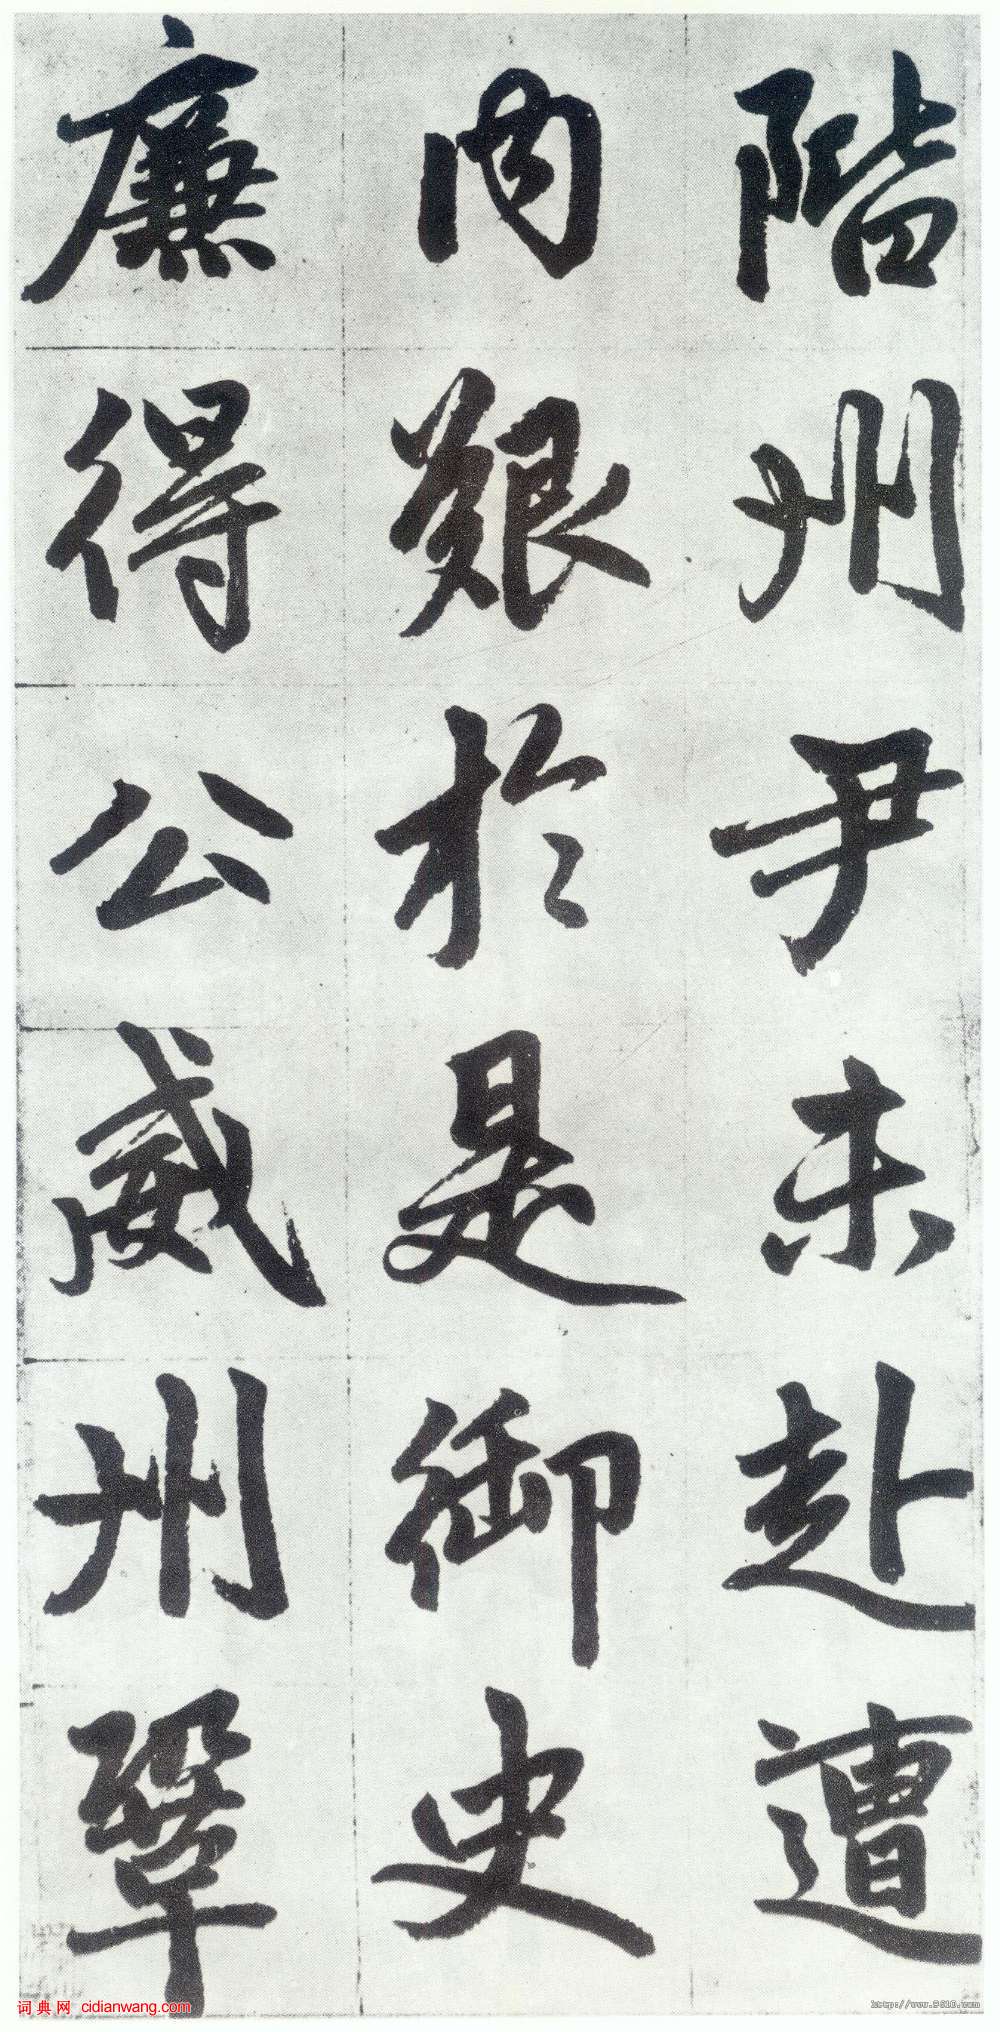 階州尹未赴遭
内艱於是御史
廉得公威州鞏
词典网 cidianwang.com
http://www.9610.com